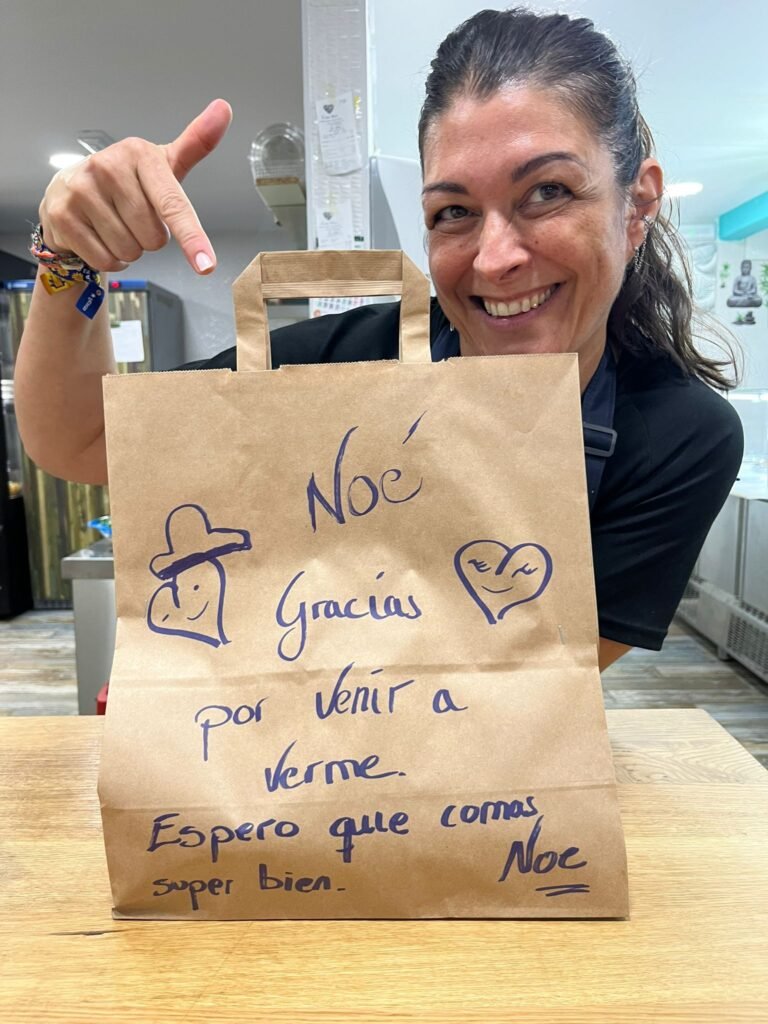 Noé
Gracias
por venir a
verme.
Espero que comas
super bien.
Noe